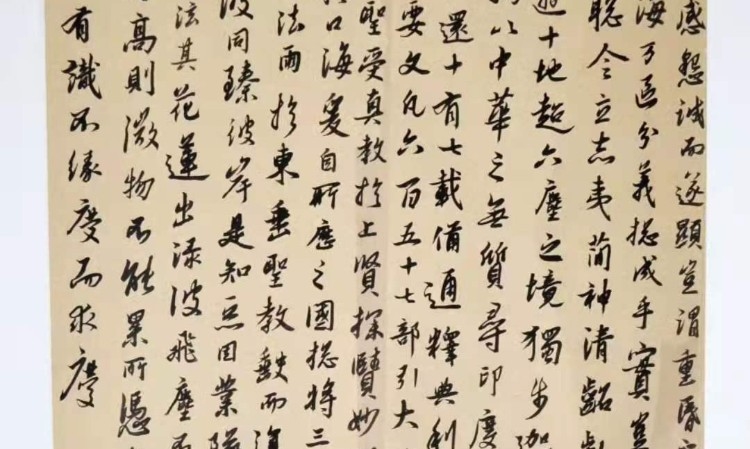 感懇誠而遂顯豈謂重昏
海万區分義揔成乎實豈
聰令立志夷簡神清齠齔
遊十地超六塵之境獨步迦
以中華之無質尋印度
還十有七載備通釋典利
要文凡六百五十七部引大
聖受真教於上賢探賾妙
口海爰自所歷之國揔將三
法雨於東垂聖教缺而復
波同臻彼岸是知惡因業墜
泫其花蓮出淥波飛塵不
高則微物不能累所憑
有識不緣慶而求慶